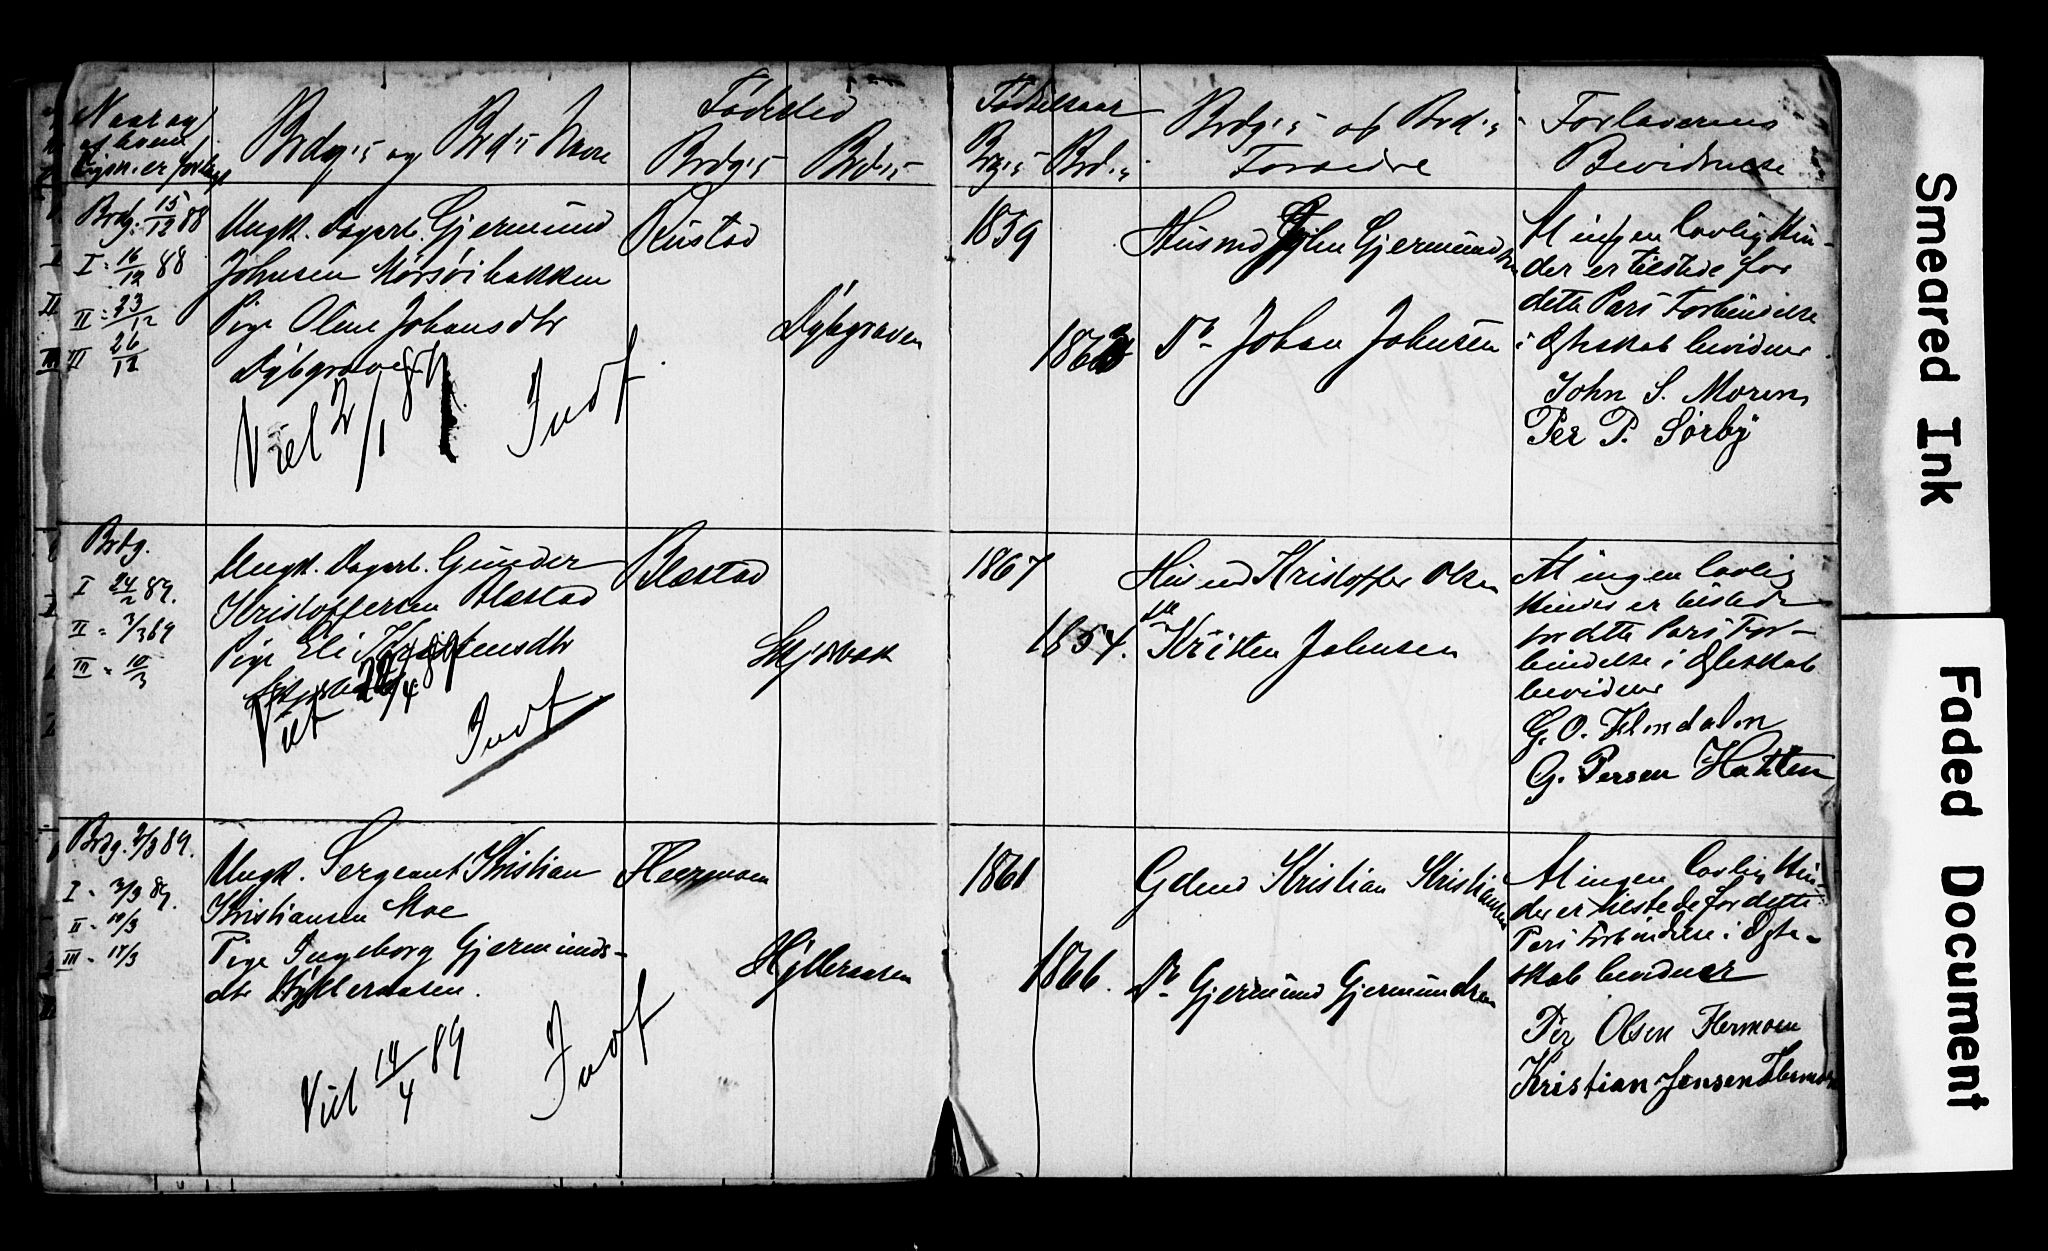 Naar og
af hvem
Lysn. er forlangt
Brdg's og Brd's Navne
Fødested
Brdg's
Brd's
Fødselsaar
Brdg's
Brd's
Brdg's og Brd's
Forældre
Forloverens
Bevidnelse
Brdg: 15/12 88
I = 16/12 88
II = 23/12
III 26/12
Ungk. Dagarb. Gjermund
Johnsen Morsøibakken
Pige Oline Johansdtr
Dybgraven
Viet 2/1 89
Indf
Rustad
Dybgraven
1859
Husmd John Gjermundsen
Do Johan Johnsen
At ingen lovlig Hin-
der er tilstede for
dette Pars Forbindelse
i Ægteskab bevidner
John S. Moren
Per P. Sørby
Brdg.
I 24/2 89.
II = 3/3 89
III = 10/3
Ungk. Dagarb. Gunder
Kristoffersen Blæstad
Pige Eli
Viet 22/4 89
Indf
Blæstad
1867
1854.
Husmd Kristoffer Olsen
Kristen Johnsen
At ingen lovlig
Hinder er tilstede
for dette Pars For-
bindelse i Ægteskab
bevidner
G. O.
G. Persen Hatten
Brdg. 2/3 89.
I = 3/3 89.
II = 10/3
III = 17/3
Ungk. Sergeant Kristian
Kristiansen Moe
Pige Ingeborg Gjermunds-
dtr Hylleraasen.
Viet 14/4 89
Indf
Heermoen
Hylleraasen
1861
1866.
Gdmd Kristian Kristiansen
Do Gjermund Gjermundsen
At ingen lovlig Hin-
der er tilstede for dette
Pars Forbindelse i Ægte-
skab bevidner
Per Olsen Hermoen
Kristian Jensen Hermoen
Smeared Ink
Faded Document